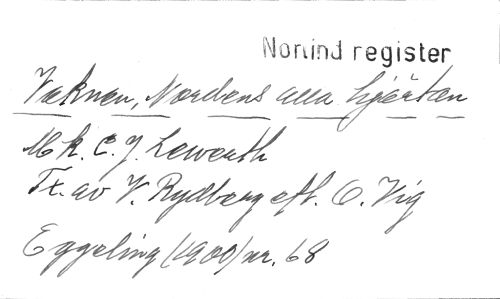 Norrind register
Vaknen, Nordens alla hjärtan
Mk. C. J. Lewerth
Tx. av V. Rydberg eft. O. Vig
Eggeling (1900) nr. 68